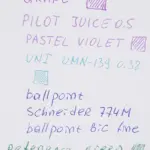 PILOT JUICE 0.5
PASTEL VIOLET
UNI UMN-139 0.38
ballpoint
Schneider 774M
ballpoint BIC fine